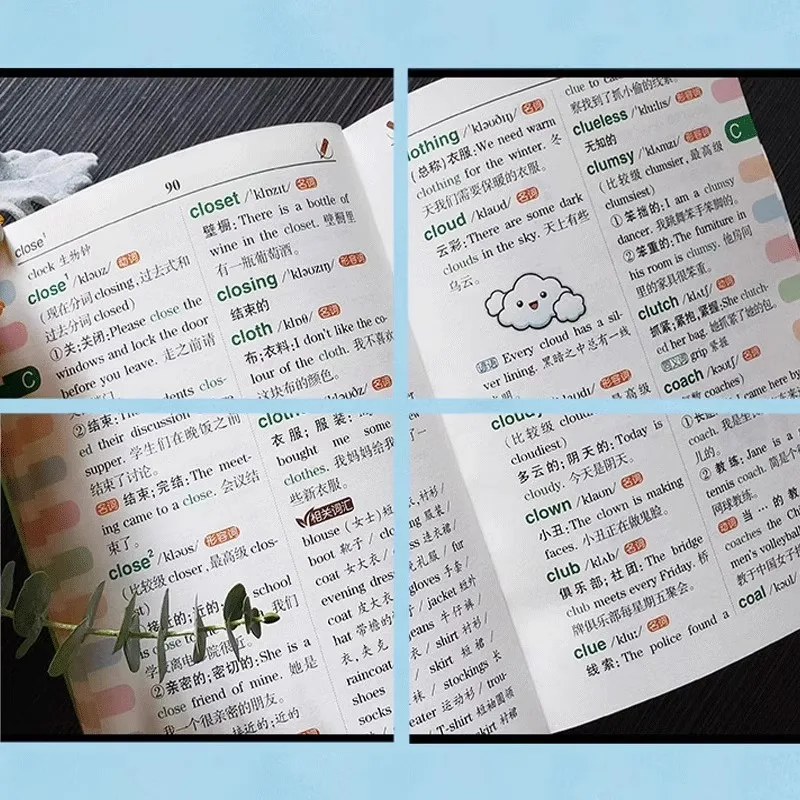 90
close¹
clock 生物钟
close¹ /kləʊz/ 动词
(现在分词 closing,过去式和
过去分词 closed)
①关;关闭:Please close the
windows and lock the door
before you leave. 走之前请
clos-
②结束:
ed their discussion
supper. 学生们在晚饭之前
结束了讨论。
名词 结束;完结:The meet-
ing came to a close. 会议结
束了。
close² /kləʊs/ 形容词
(比较级 closer,最高级 clos-
school
我们
②亲密的,密切的:She is a
close friend of mine. 她是
我一个很亲密的朋友。
接近的;近的
closet /ˈklɒzɪt/ 名词
壁橱:There is a bottle of
wine in the closet. 壁橱里
有一瓶葡萄酒。
closing /ˈkləʊzɪŋ/ 形容词
结束的
cloth /klɒθ/ 名词
布;衣料:I don't like the co-
lour of the cloth. 我不喜欢
这块布的颜色。
名词
衣服;服装:
bought me some
clothes. 我妈妈给我
些新衣服。
相关词汇
blouse (女士)
boot 靴子 /
coat 女大衣 /
evening dress
coat 皮大衣 /
hat 带檐的
raincoat
shoes
socks
othing /ˈkləʊðɪŋ/ 名词
(总称)衣服:We need warm
clothing for the winter. 冬
天我们需要保暖的衣服。
cloud /klaʊd/ 名词
云彩:There are some dark
clouds in the sky. 天上有些
乌云。
谚语 Every cloud has a sil-
ver lining. 黑暗之中总有一线
形容词
cloudy
(比较级
cloudiest)
多云的;阴天的:Today is
cloudy. 今天是阴天。
clown /klaʊn/ 名词
小丑:The clown is making
faces. 小丑正在做鬼脸。
club /klʌb/ 名词
俱乐部;社团:The bridge
club meets every Friday. 桥
牌俱乐部每星期五聚会。
clue /kluː/ 名词
线索:The police found a
衬衫 /
服装 /
连衣裙 /
礼服 / fur
gloves 手套 /
jacket 短外
牛仔裤 /
skirt 衬裙
/ skirt 短裙
stockings 长
运动衫 / trou-
T-shirt 短袖圆领
skirt 衬裙
clue to
察找到了抓小偷的线索。
clueless /ˈkluːlɪs/ 形容词
无知的
clumsy /ˈklʌmzɪ/ 形容词
(比较级 clumsier,最高级
clumsiest)
①笨拙的:I am a clumsy
dancer. 我跳舞笨手笨脚的。
②笨重的:The furniture in
his room is clumsy. 他房间
里的家具很笨重。
clutch /klʌtʃ/ 动词
抓紧;紧抱,紧握:She clutch-
ed her bag. 她抓紧了她的包。
同义词 grip 紧握
coach /kəʊtʃ/ 名词
coaches)
I came here by
coach. 我是坐
儿的。
②教练:Jane is a
tennis coach. 简是个
网球教练。
动词 当…的教
coaches the Ch
men's volleyball
教于中国女子
coal /kəʊl/
C
C